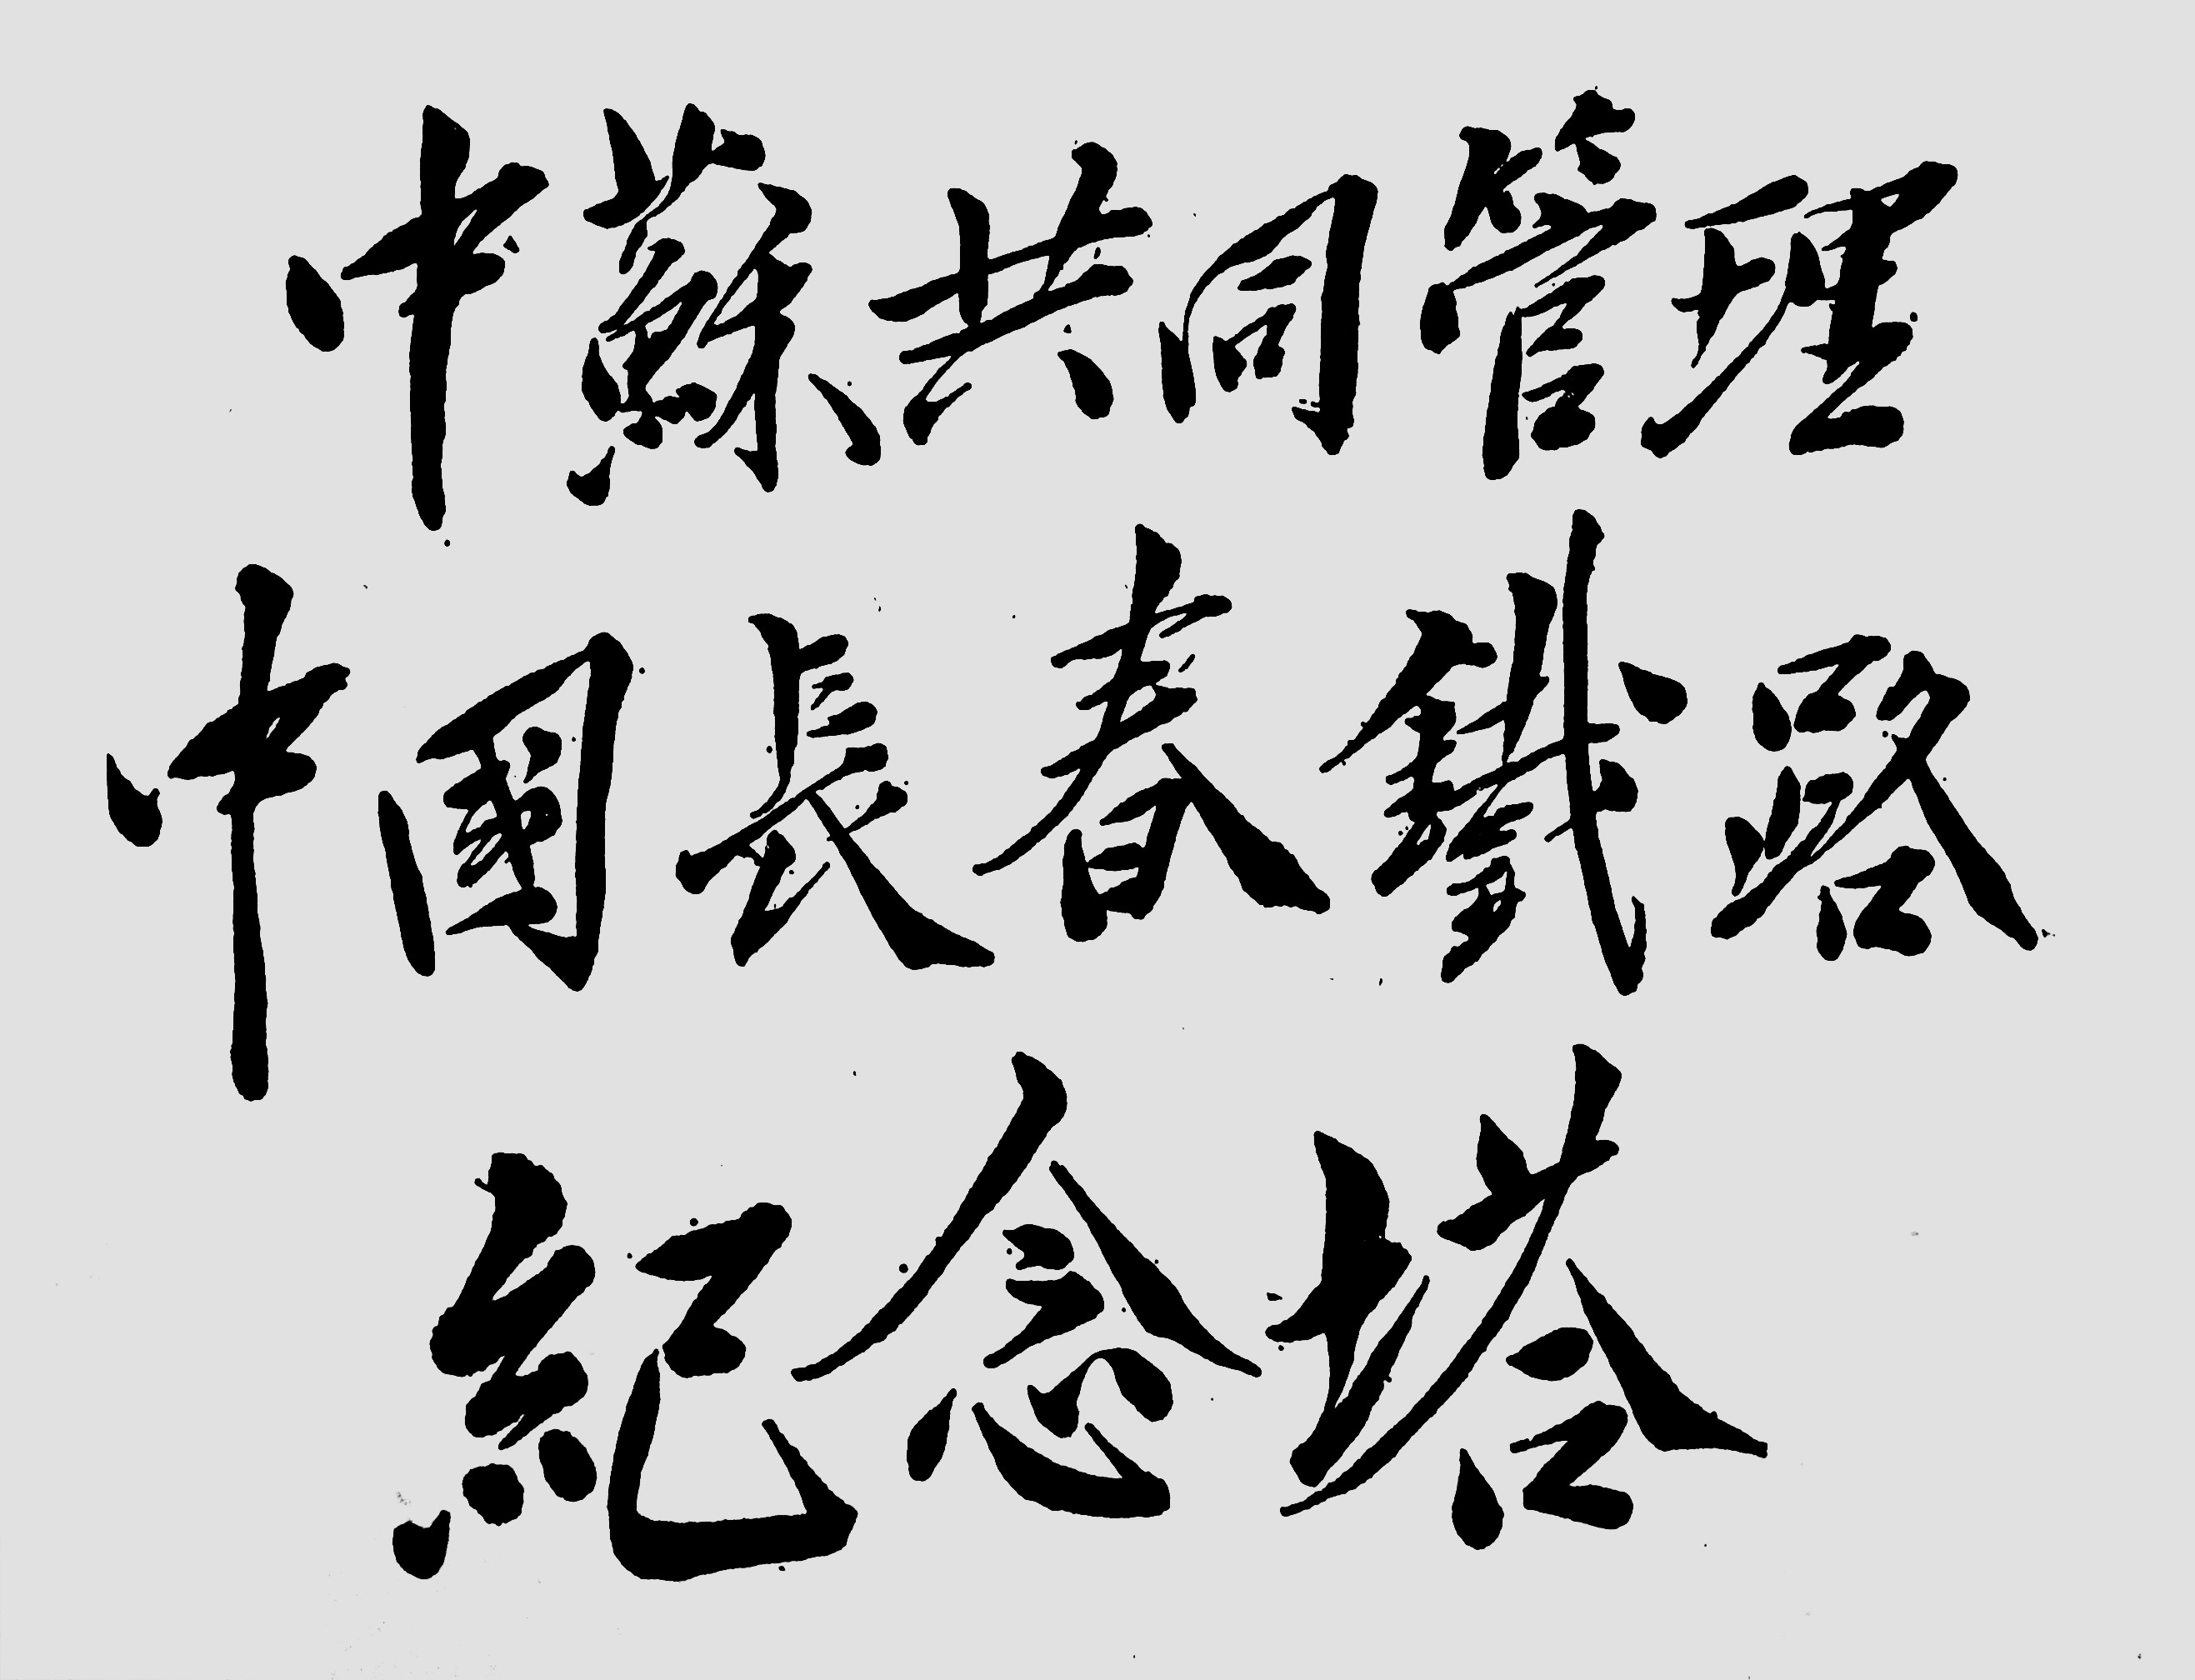 中蘇共同管理
中國長春鐵路
紀念塔